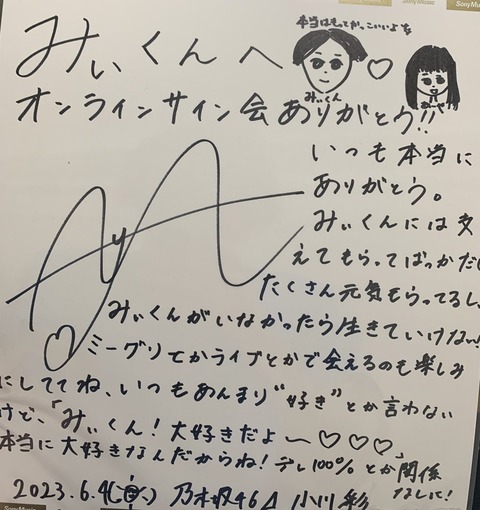 SonyMusic
SonyMusic
本当はもっとかっこいいよ
みぃくんへ
みぃくん
オンラインサイン会ありがとう!!
いつも本当に
ありがとう。
みぃくんには支
えてもらってばっかだし
たくさん元気もらってるし、
みぃくんがいなかったら生きていけない!
ミーグリとかライブとかで会えるのも楽しみ
にしててね、いつもあんまり"好き"とか言わない
けど、「みぃくん!大好きだよ〜♡♡♡」
本当に大好きなんだからね!テレ100%とか関係
なしに!
2023.6.4(日) 乃木坂46 小川彩